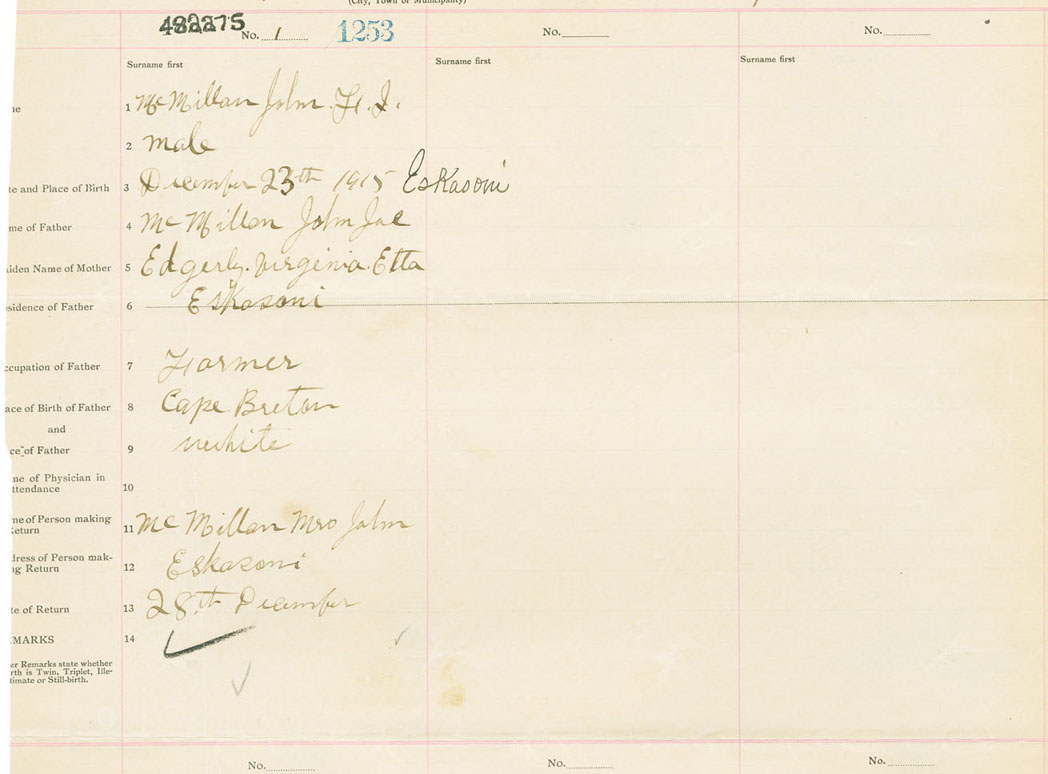 (City, Town or Municipality)
482275 No. 1 1253 No. No.
Surname first Surname first Surname first
me 1 McMillan John. H. J.
2 male
te and Place of Birth 3 December 23th 1915 Eskasoni
me of Father 4 McMillan John Joe
aiden Name of Mother 5 Edgerly. Virginia. Etta
esidence of Father 6 Eskasoni
ccupation of Father 7 Farmer
ace of Birth of Father 8 Cape Breton
and
ce of Father 9 white
me of Physician in
ttendance 10
me of Person making
Return 11 McMillan Mrs John
dress of Person mak-
ng Return 12 Eskasoni
te of Return 13 28th December
EMARKS 14
er Remarks state whether
rth is Twin, Triplet, Ille-
timate or Still-birth.
No. No. No.